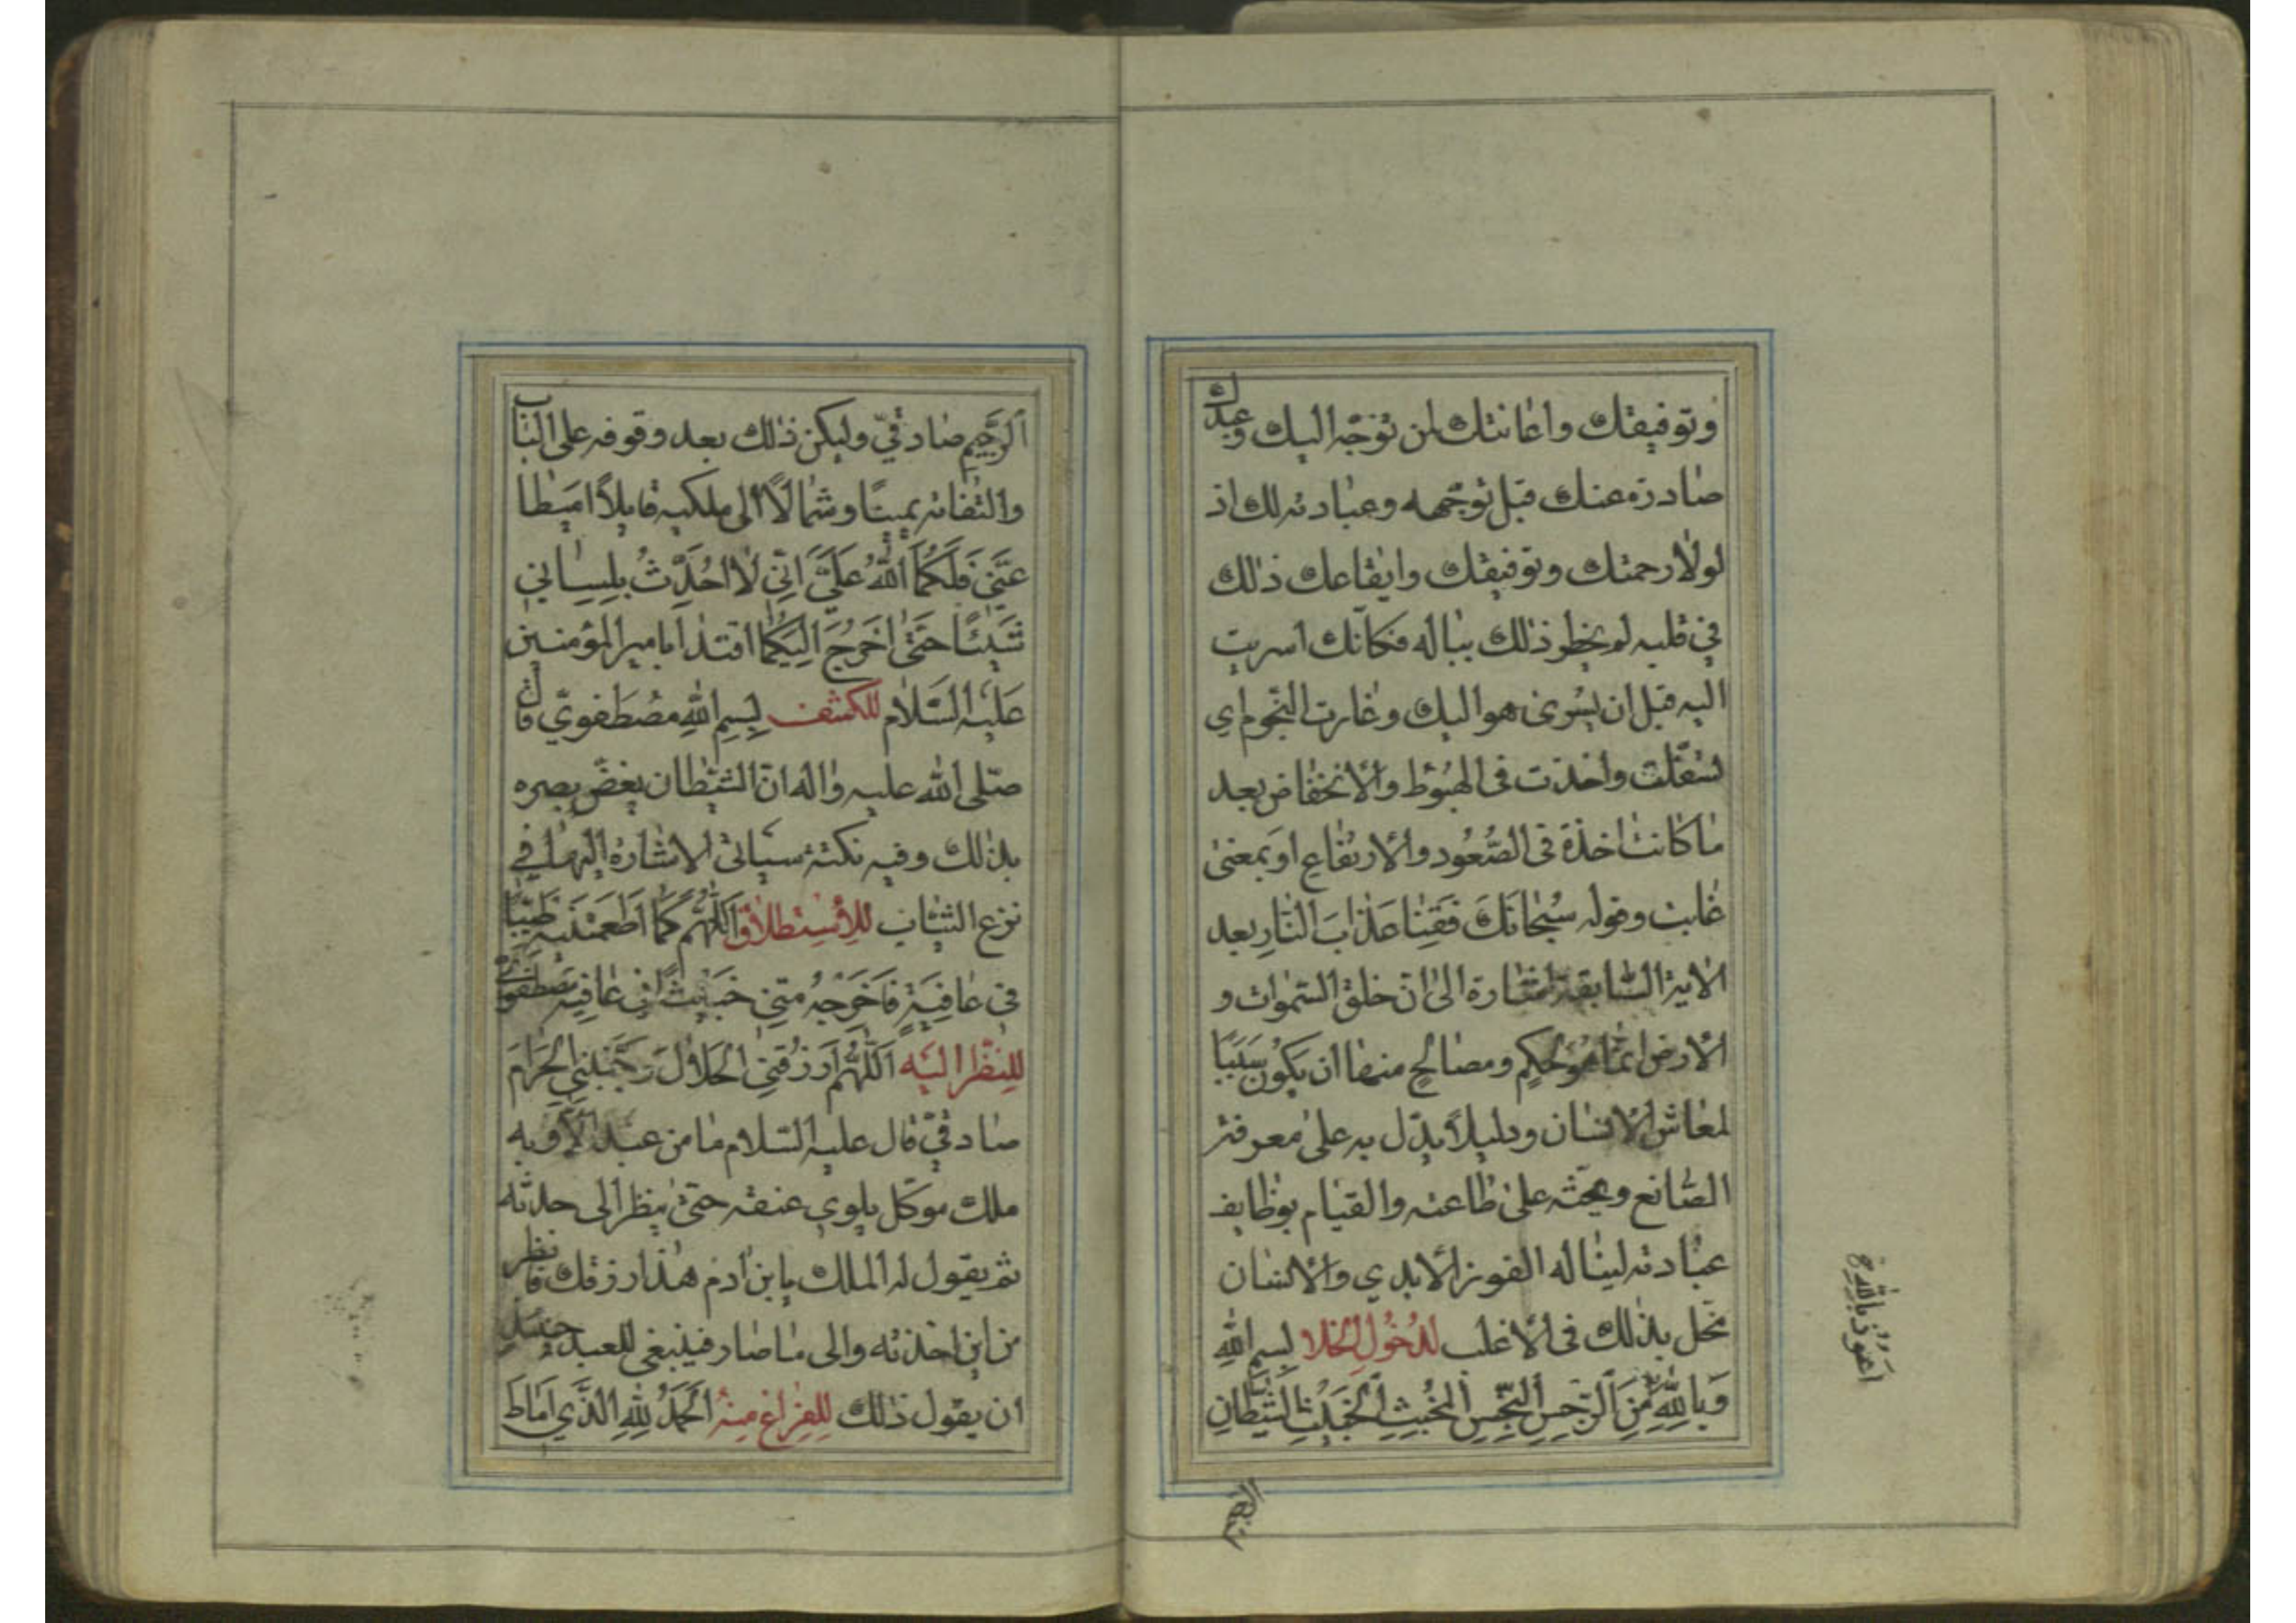 وتوفيقك واعانتك لمن توجّه اليك وعبدك
صادرة عنك قبل توجّهه وعبادته لك اذ
لولا رحمتك وتوفيقك وايقاعك ذلك
في قلبه لم يخطر ذلك بباله فكانّك اسريت
اليه قبل ان يسرى هو اليك وغارت النّجوم اي
تسفّلت واخذت فى الهبُوط والانخفاض بعد
ما كانت اخذة فى الصُّعُود والارتفاع او بمعنىٰ
غابت وقوله سُبْحانَكَ فَقِنا عَذابَ النّارِ بعد
الاية السّابقة اشارة الىٰ ان خلق السّموات و
الارض انّما هو لحكم ومصالح منها ان يكون سَبَبًا
لمعاش الانسان ودليلاً يدّل به علىٰ معرفة
الصّانع ويحثّه علىٰ طاعته والقيام بوظايف
عبادته لينا له الفوز الابدي والانسان
مخل بذلك فى الاغلب لدُخُولِ الخلا بِسمِ اللهِ
وَبِاللهِ مِنَ الرِّجسِ النّجِسِ المُخبِثِ الخَبيثِ الشَّيطانِ
اَعُوذُ بِاللهِ
الرجيم
الرَّجيمِ صادقيّ وليكن ذلك بعد وقوفه على الباب
والتفاته يمينًا وشمالًا الى ملكيه قايلاً اميطا
عنّي فَلَكُمَا اللهُ عَلَيَّ اَنّي لا اُحْدِثُ بِلِسٰاني
شَيْئًا حَتّىٰ اَخرُجَ اِلَيكُما اقتداء بامير المؤمنين
عَليه السَّلام للكشف بِسمِ اللهِ مصُطَفويّ قال
صلّى الله عليه واله انّ الشيطان يغضّ بصره
بذلك وفيه نكتة سياتى الاشارة اليها في
نزع الثياب للاِسْتِطلاق اَللّهُمَّ كَما اَطعَمتَنيهِ طَيِّبًا
في عافِيَةٍ فَاَخرِجهُ مِنّي خَبيثًا في عافِيَة مصطفويّ
للِنّظَر اليَه اَللّهُمَّ ارزُقنِي الحَلالَ وَجَنِّبنِي الحَرامَ
صادقيّ قال عليه السّلام ما من عبد الّا وبه
ملك موكّل يلوي عنقه حتّىٰ ينظر الى حدثه
ثم يقول له الملك يابن ادم هذا رزقك فانظر
من اين اخذته والى ما صار فينبغي للعبد حينئذٍ
ان يقول ذلك لِلفراغ مِنهُ اَلحَمدُ لِلّهِ الَّذي اَماطَ